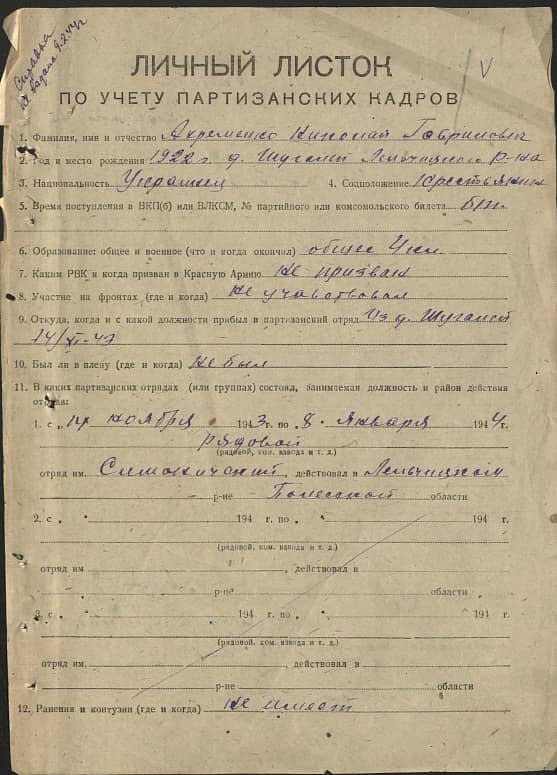 Справка
выдана 9.2.44 г
V
ЛИЧНЫЙ ЛИСТОК
ПО УЧЕТУ ПАРТИЗАНСКИХ КАДРОВ
1. Фамилия, имя и отчество Ахременко Николай Гаврилович
2. Год и место рождения 1922 г. д. Шугалей Лельчицкого р-на
3. Национальность Украинец 4. Соцположение Крестьянин
5. Время поступления в ВКП(б) или ВЛКСМ, № партийного или комсомольского билета б/п.
6. Образование: общее и военное (что и когда окончил) общее 4 кл.
7. Каким РВК и когда призван в Красную Армию не призван
8. Участие на фронтах (где и когда) не участвовал
9. Откуда, когда и с какой должности прибыл в партизанский отряд Из д. Шугалей
14/XI-43
10. Был ли в плену (где и когда) не был
11. В каких партизанских отрядах (или группах) состоял, занимаемая должность и район действия
отряда:
1. с „14 ноября 1943 г. по „8 „ января 1944 г.
рядовой
(рядовой, ком. взвода и т. д.)
отряд им. Симоничский, действовал в Лельчицком
р-не Полесской области
2. с „ „ 194 г. по „ „ 194 г.
(рядовой, ком. взвода и т. д.)
отряд им. , действовал в
р-не области
3. с „ „ 194 г. по „ „ 194 г.
(рядовой, ком. взвода и т. д.)
отряд им. , действовал в
р-не области
12. Ранения и контузии (где и когда) не имеет